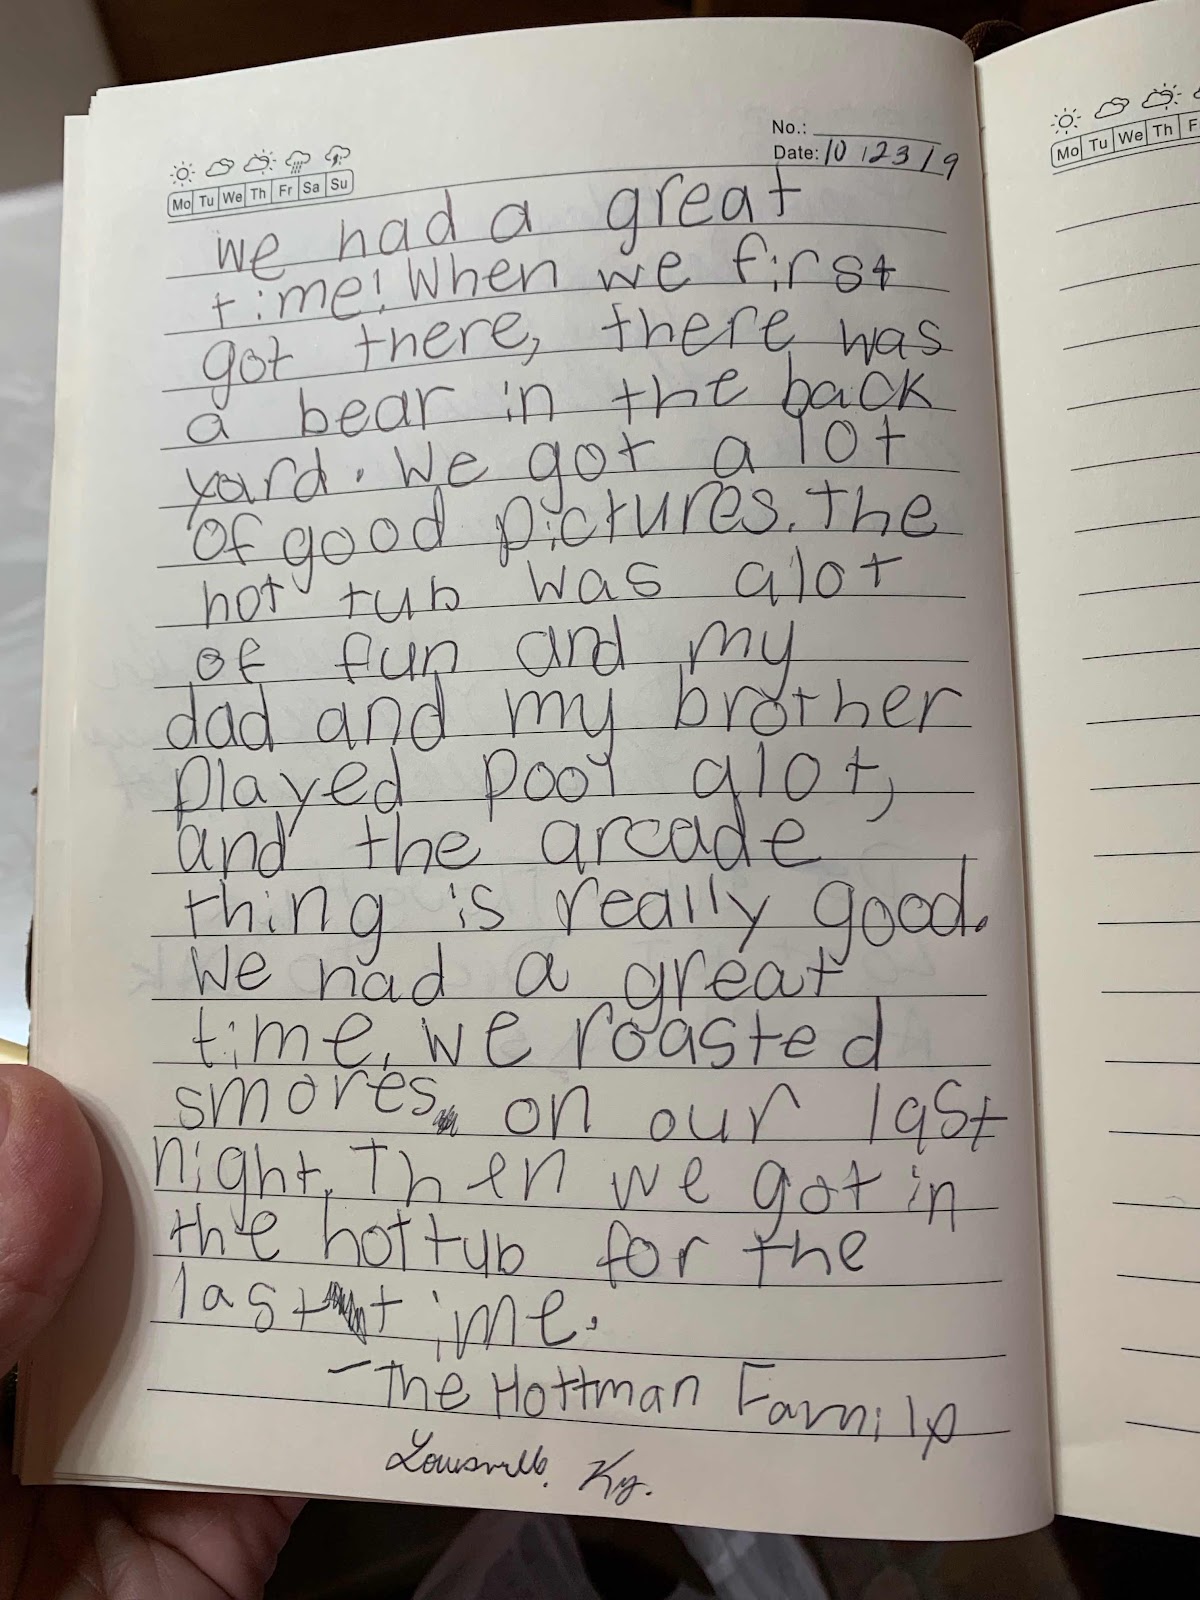 No.:
Date: 10/23/19
Mo Tu We Th Fr Sa Su
Mo Tu We Th F
we had a great
time! When we first
got there, there was
a bear in the back
yard. We got a lot
of good pictures. The
hot tub was alot
of fun and my
dad and my brother
played pool alot,
and the arcade
thing is really good.
We had a great
time, we roasted
smores on our last
night. Then we got in
the hot tub for the
last time.
- The Hottman Family
Louisville, Ky.